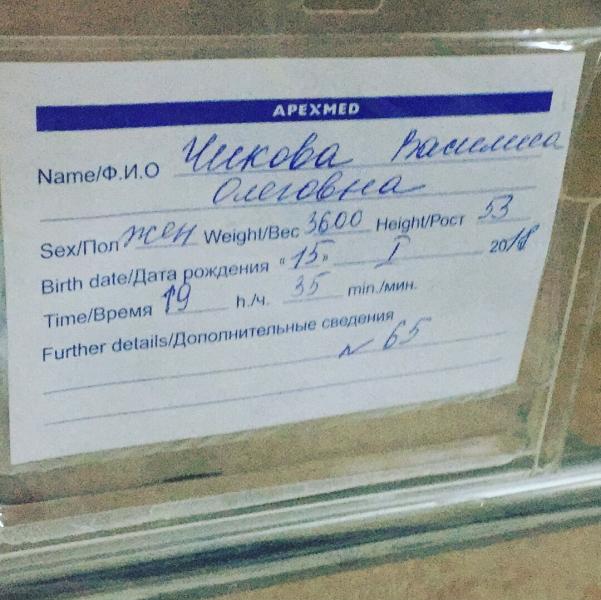 APEXMED
Name/Ф.И.О Чикова Василиса
Олеговна
Sex/Пол жен Weight/Вес 3600 Height/Рост 53
Birth date/Дата рождения "15" I 2018
Time/Время 19 h./ч. 35 min./мин.
Further details/Дополнительные сведения
N 65